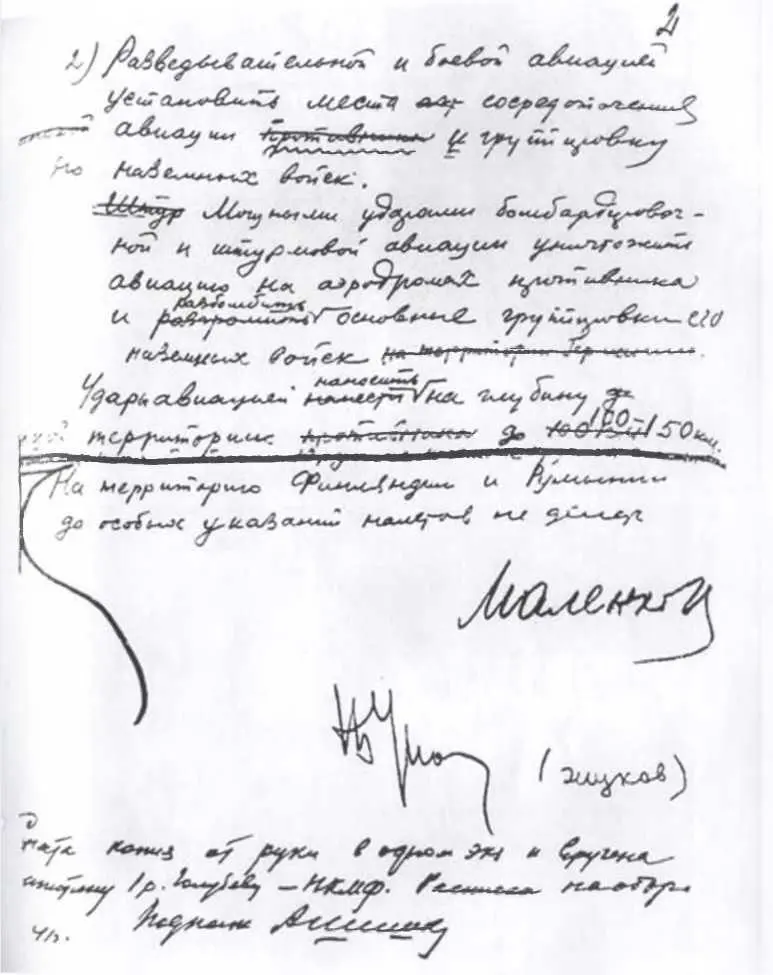 2
2) Разведывательной и боевой авиацией
установить места сосредоточения
авиации противника и группировку
наземных войск.
Штур Мощными ударами бомбардировоч-
ной и штурмовой авиации уничтожить
авиацию на аэродромах противника
разбомбить
и разгромить основные группировки его
наземных войск на территории Германии.
наносить
Удары авиацией нанести на глубину
территории противника до 100 150 км.
На территорию Финляндии и Румынии
до особых указаний налетов не делать
Маленков
(Жуков)
копия от руки в одном экз и вручена
1 р. Голубеву – НКМФ. Расписка на обор
41г. Подпись